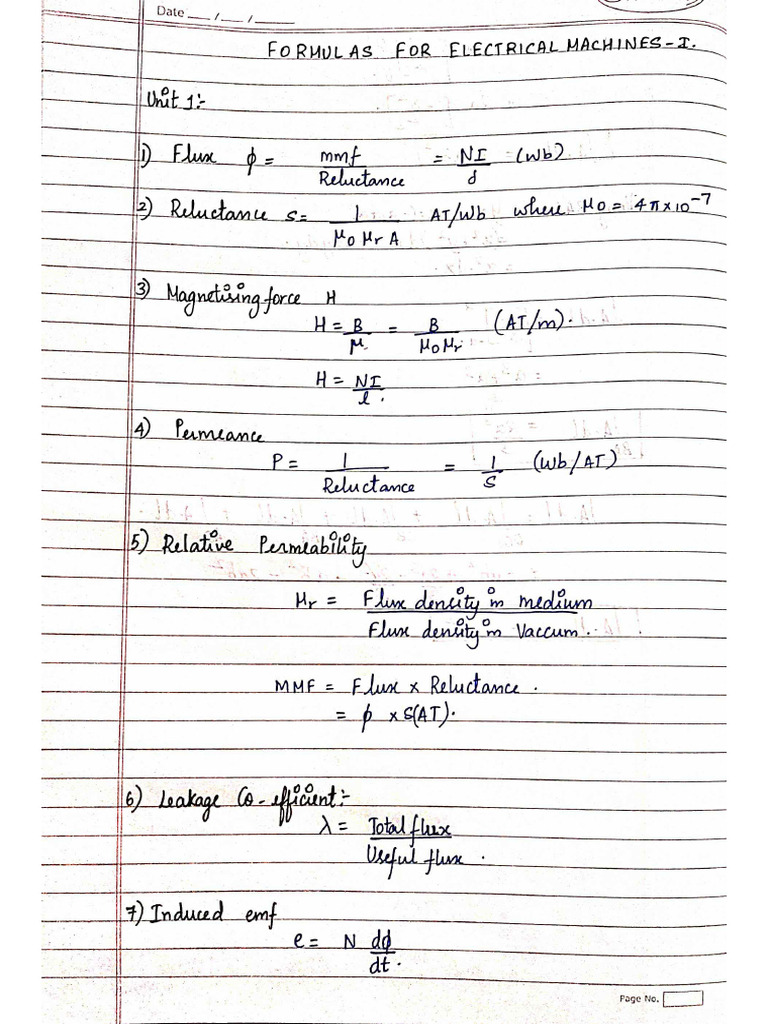 Date __/__/____
FORMULAS FOR ELECTRICAL MACHINES-I.
Unit 1:-
1) Flux ϕ = mmf/Reluctance = NI/S (Wb)
2) Reluctance S = 1/μ0 μr A AT/Wb where μ0 = 4π×10^-7
3) Magnetising force H
H = B/μ = B/μ0μr (AT/m).
H = NI/l.
4) Permeance
P = 1/Reluctance = 1/S (Wb/AT)
5) Relative Permeability
μr = Flux density in medium/Flux density in Vaccum.
MMF = Flux × Reluctance.
= ϕ × S(AT).
6) Leakage Co-efficient:-
λ = Total flux/Useful flux.
7) Induced emf
e = N dϕ/dt.
Page No.